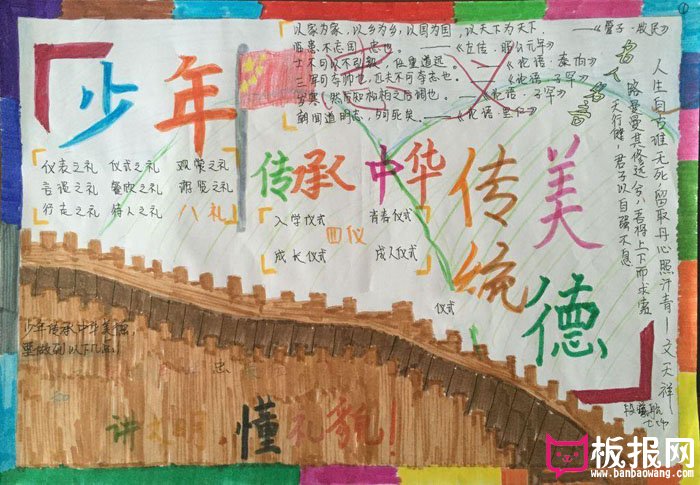 少年
以家为家，以乡为乡，以国为国，以天下为天下。——《管子·牧民》
临患不忘国，忠也。——《左传·昭公元年》
士不可以不弘毅，任重道远。——《论语·泰伯》
三军可夺帅也，匹夫不可夺志也。——《论语·子罕》
岁寒，然后知松柏之后凋也。——《论语·子罕》
朝闻道，夕死矣。——《论语·里仁》
名人名言
人生自古谁无死，留取丹心照汗青——文天祥
路曼曼其修远兮，吾将上下而求索
天行健，君子以自强不息
仪表之礼 仪式之礼 观赏之礼
言谈之礼 餐饮之礼 游览之礼
行走之礼 待人之礼 八礼
传承中华
传统
美德
入学仪式 青春仪式
四仪
成长仪式 成人仪式
仪式
少年传承中华美德,
要做到以下几点!
讲文明,懂礼貌!
板报网
www.banbaowang.com